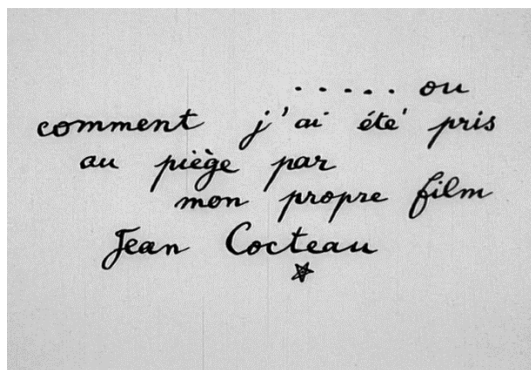 ..... ou
comment j'ai été pris
au piège par
mon propre film
Jean Cocteau